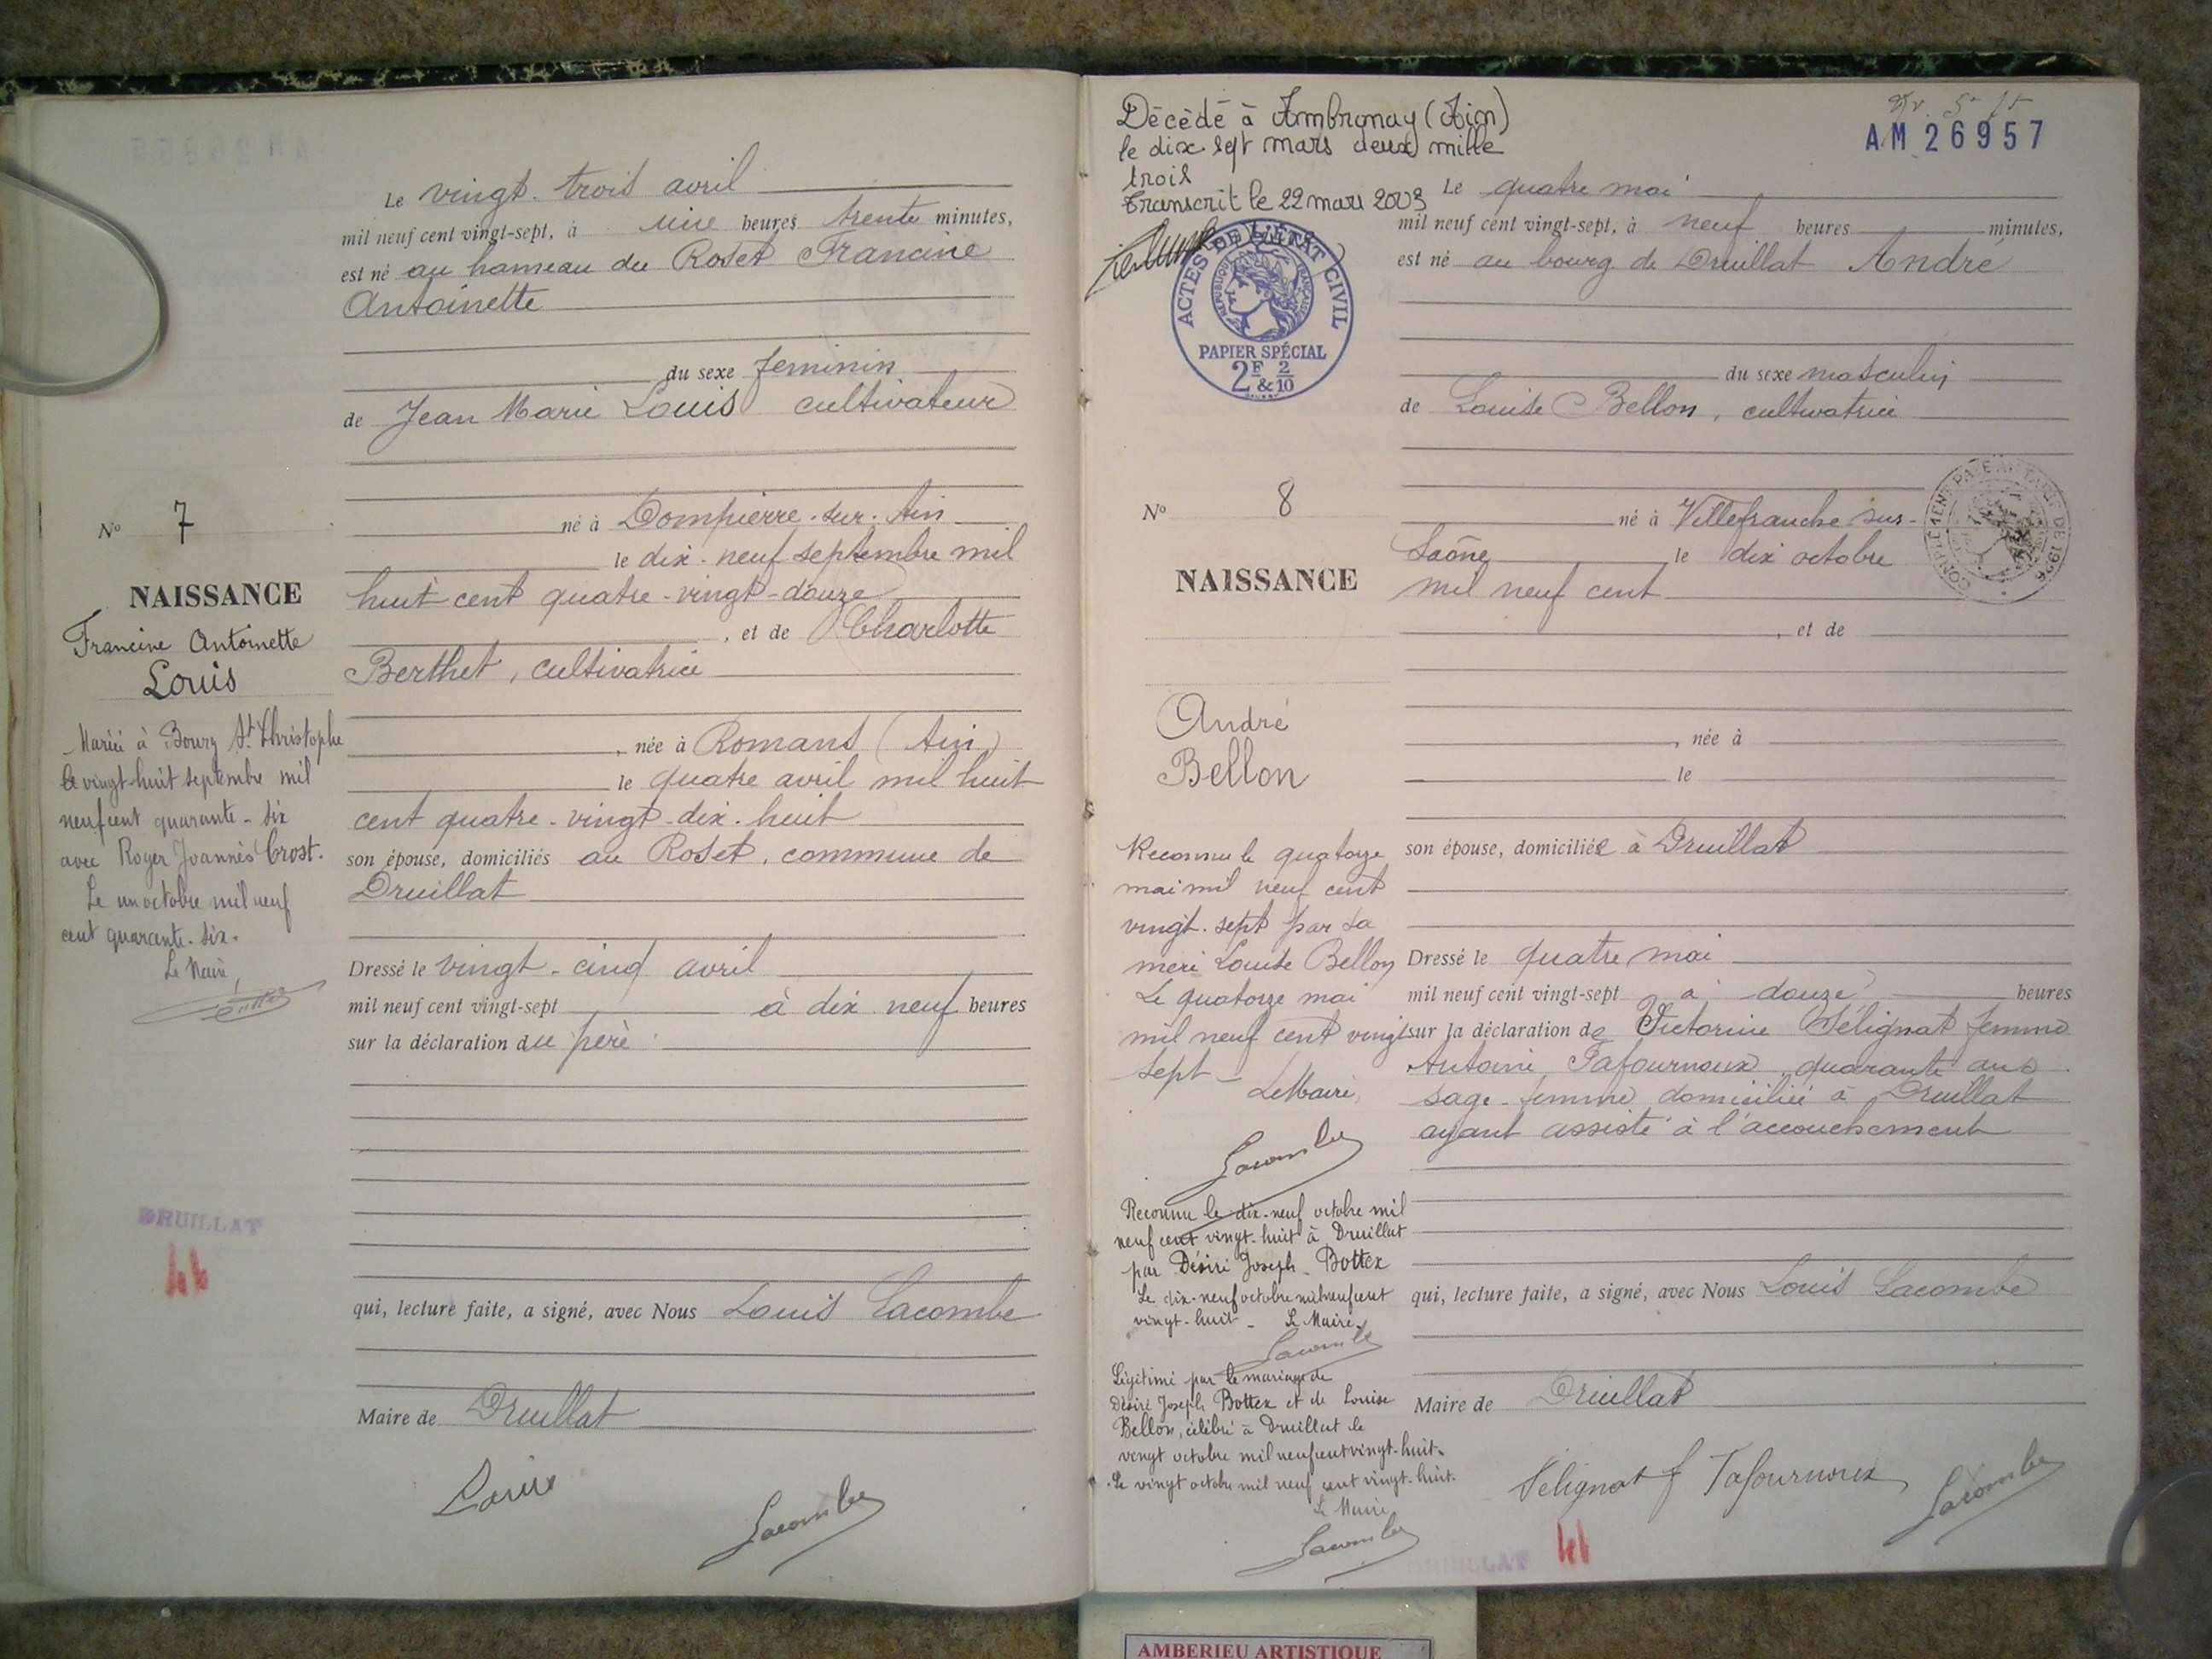 Le vingt-trois avril
mil neuf cent vingt-sept, à une heures trente minutes,
est né au hameau du Roset Francine
Antoinette
du sexe feminin
de Jean Marie Louis cultivateur
né à Dompierre-sur-Ain
le dix-neuf septembre mil
huit cent quatre-vingt-douze
, et de Charlotte
Berthet, cultivatrice
, née à Romans (Ain)
le quatre avril mil huit
cent quatre-vingt-dix-huit
son épouse, domiciliés au Roset, commune de
Druillat
Dressé le vingt-cinq avril
mil neuf cent vingt-sept à dix neuf heures
sur la déclaration du père
qui, lecture faite, a signé, avec Nous Louis Lacombe
Maire de Druillat
Louis
Lacombe
No 7
NAISSANCE
Francine Antoinette
Louis
Mariée à Bourg St Christophe
le vingt-huit septembre mil
neuf cent quarante-six
avec Roger Joannès Crost.
Le un octobre mil neuf
cent quarante-six.
Le Maire,
DRUILLAT
Décédé à Ambronay (Ain)
le dix-sept mars deux mille
trois
Transcrit le 22 mars 2003
ACTES DE L'ÉTAT CIVIL
RÉPUBLIQUE FRANÇAISE
PAPIER SPÉCIAL
2F & 2/10
AM 26957
Le quatre mai
mil neuf cent vingt-sept, à neuf heures minutes,
est né au bourg de Druillat André
du sexe masculin
de Louise Bellon, cultivatrice
né à Villefranche-sur-
Saône le dix octobre
mil neuf cent
, et de
, née à
le
son épouse, domiciliée à Druillat
Dressé le quatre mai
mil neuf cent vingt-sept à douze heures
sur la déclaration de Victorine Sélignat femme
Antoine Tafournoux, quarante ans
sage-femme domiciliée à Druillat
ayant assisté à l'accouchement
qui, lecture faite, a signé, avec Nous Louis Lacombe
Maire de Druillat
Sélignat f Tafournoux
Lacombe
No 8
NAISSANCE
André
Bellon
Reconnu le quatorze
mai mil neuf cent
vingt-sept par sa
mère Louise Bellon
Le quatorze mai
mil neuf cent vingt
sept - Le Maire,
Lacombe
Reconnu le dix-neuf octobre mil
neuf cent vingt-huit à Druillat
par Désiré Joseph Bottex
Le dix-neuf octobre mil neuf cent
vingt-huit - Le Maire,
Lacombe
Légitimé par le mariage de
Désiré Joseph Bottex et de Louise
Bellon, célébré à Druillat le
vingt octobre mil neuf cent vingt-huit.
Le vingt octobre mil neuf cent vingt-huit.
Le Maire,
Lacombe
DRUILLAT
AMBERIEU ARTISTIQUE